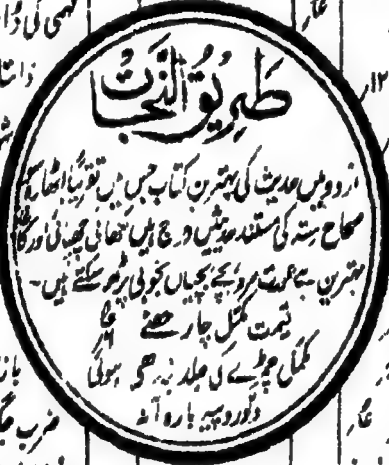 طریق النجات
اردو میں حدیث کی بہترین کتاب جس میں تقریباً اٹھارہ سو
صحاح ستہ کی مستند حدیثیں درج ہیں لکھائی چھپائی اور کاغذ
بہترین ہے عورت مرد بچے بچیاں بخوبی پڑھ سکتے ہیں۔
قیمت مکمل چار حصے
مکمل چمڑے کی جلد بندھی ہوئی
دو روپیہ بارہ آنہ